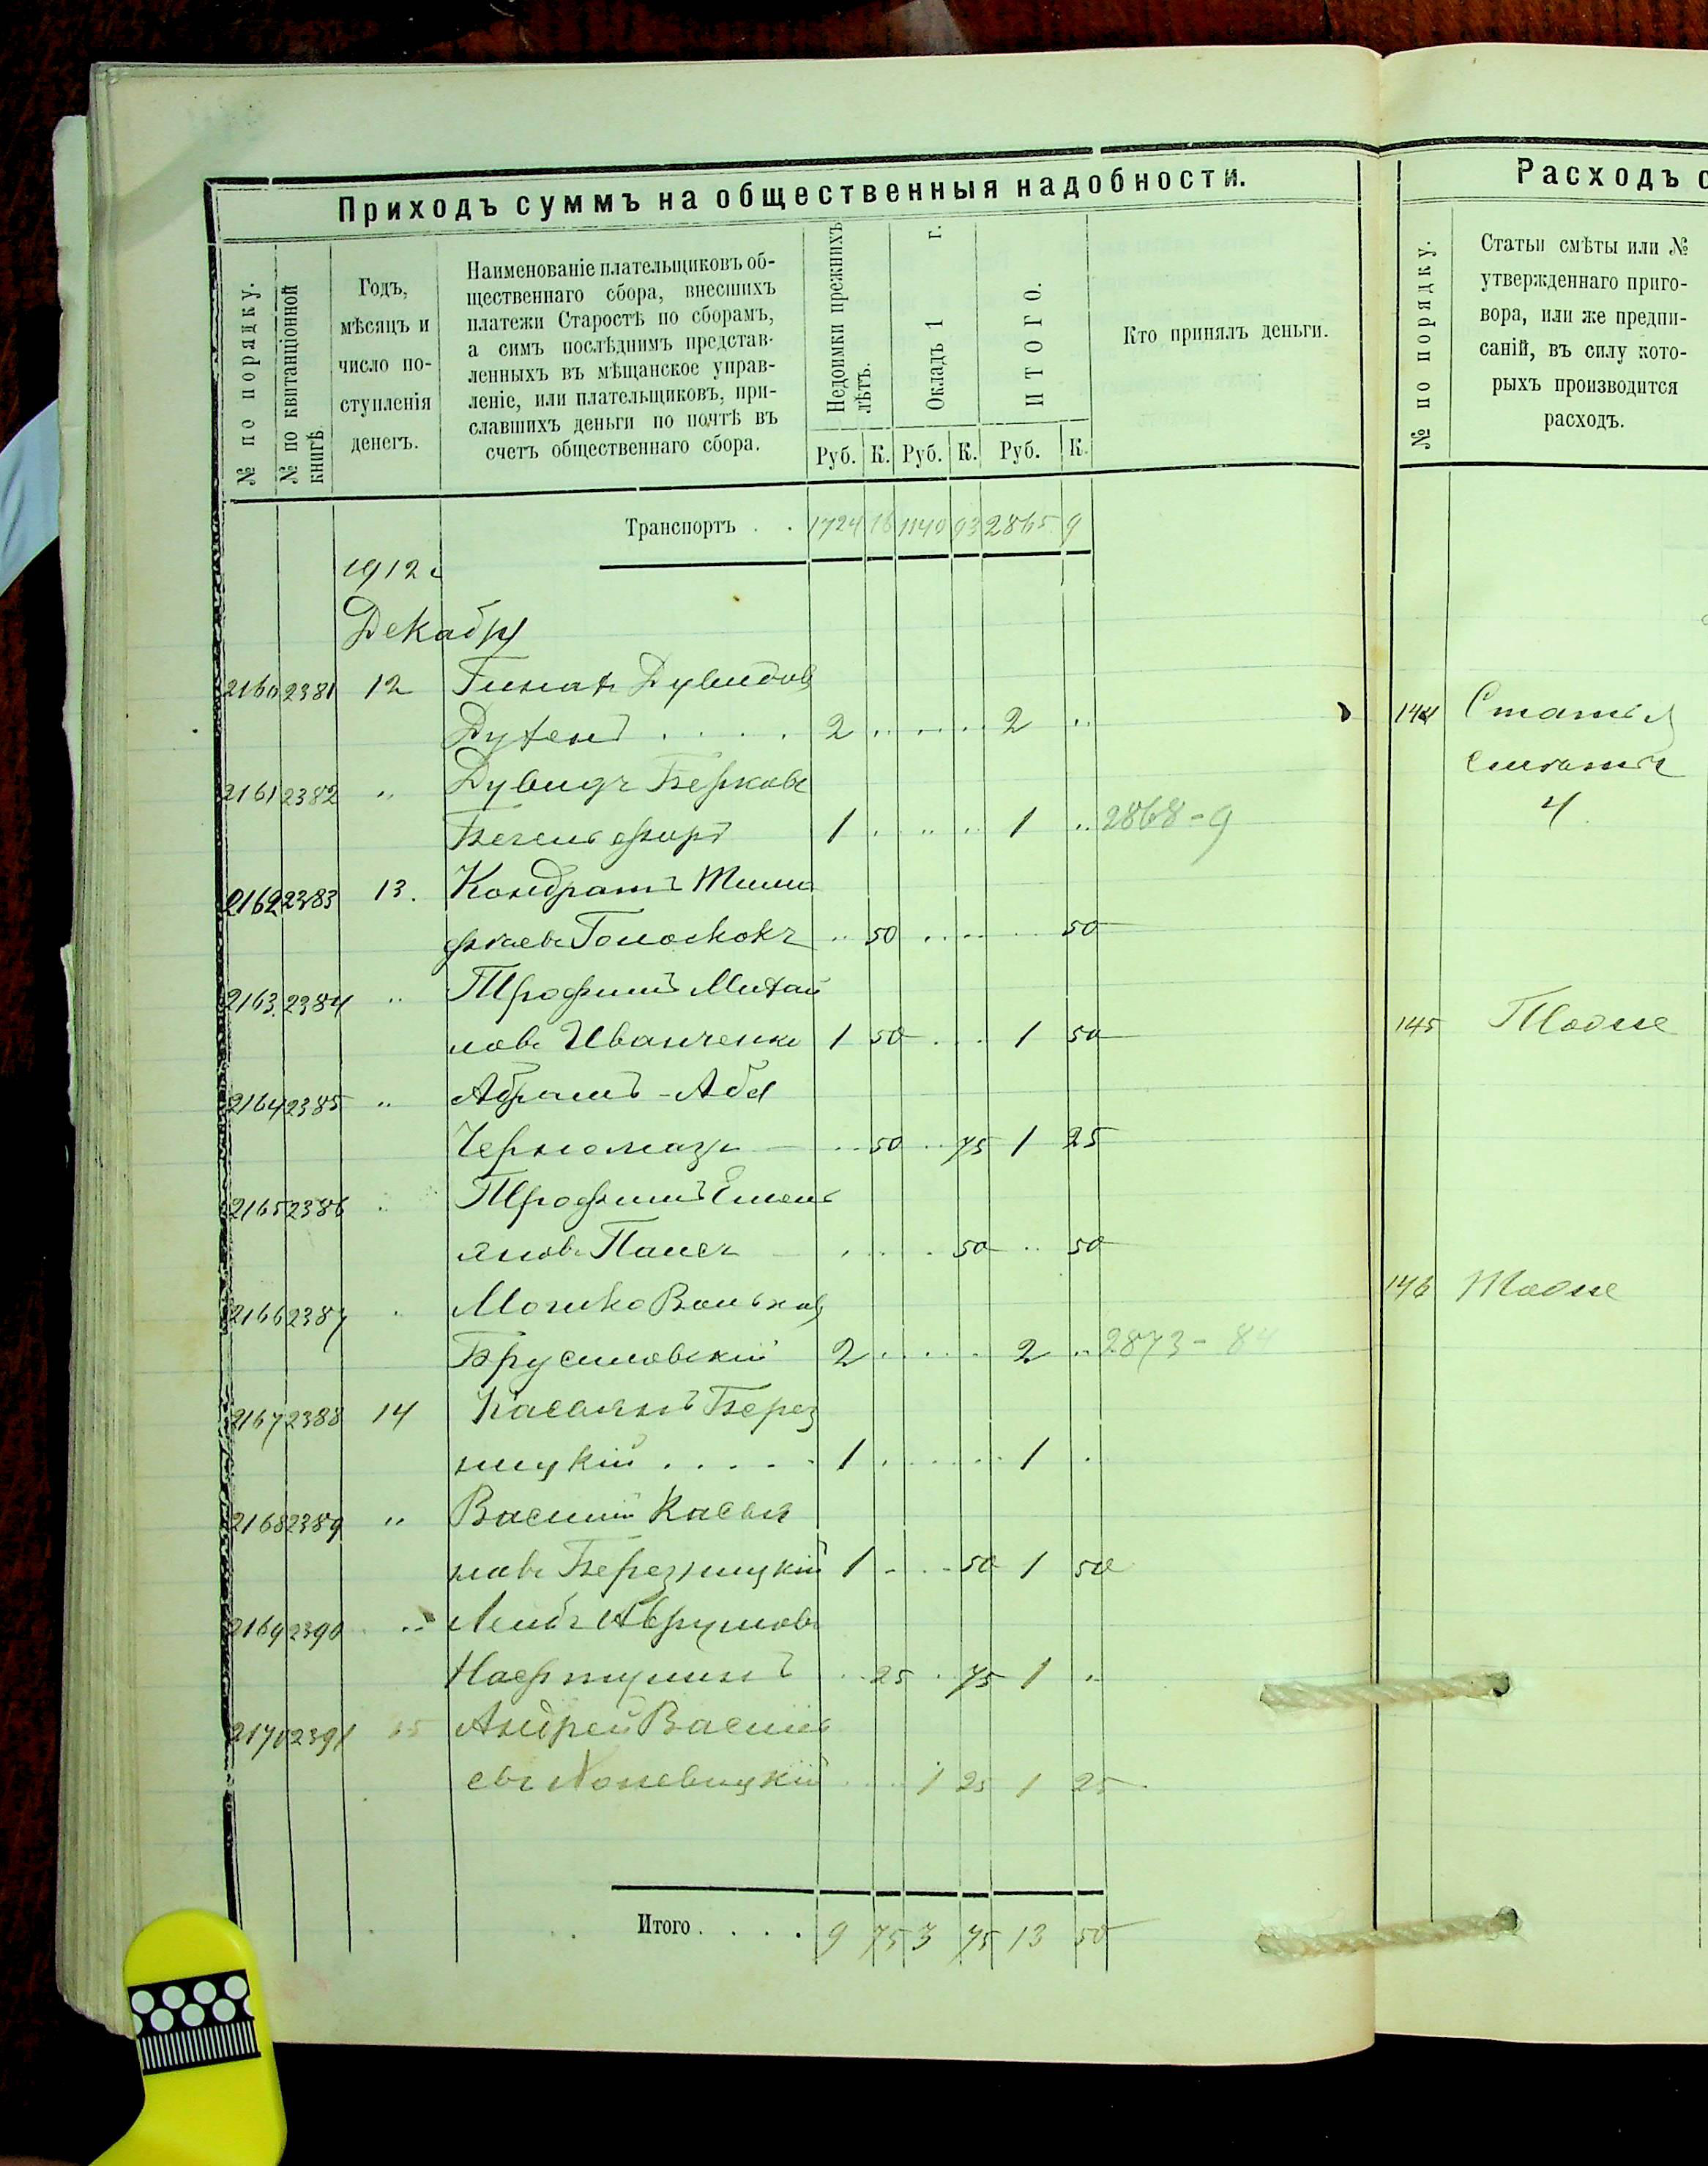 Приходъ суммъ на общественныя надобности.
№ по порядку.
№ по квитанціонной книгѣ.
Годъ,
мѣсяцъ и
число по-
ступленія
денегъ.
Наименованіе плательщиковъ об-
щественнаго сбора, внесшихъ
платежи Старостѣ по сборамъ,
а симъ послѣднимъ представ-
ленныхъ въ мѣщанское управ-
леніе, или плательщиковъ, при-
славшихъ деньги по почтѣ въ
счетъ общественнаго сбора.
Недоимки прежнихъ лѣтъ.
Окладъ 1 г.
ИТОГО.
Кто принялъ деньги.
Руб. К. Руб. К. Руб. К.
Транспортъ . . 1724 16 1140 93 2865 9
1912 г
Декабря
2160 2381 12
Дувидовъ
2 .. .... 2 ..
2161 2382 ,, Дувидъ Берковъ
1 . .. .. 1 .. 2868-9
2162 2383 13. Кондратъ Тимо
феевъ .. 50 .... 50
2163. 2384 ,, Трофимъ Михай
ловъ Иванченко 1 50 ... 1 50
2164 2385 ,, Абрамъ-Аба
Черномазъ .. 50 .. 75 1 25
2165 2386 ,, Трофимъ Емель
яновъ Панса . . . 50 .. 50
2166 2387 . Мошко Вольковъ
Брусиловскій 2 ..... 2 .. 2873-84
2167 2388 14 Касьянъ Берез
ницкій . . . . . 1 ...... 1 .
2168 2389 ,, Василій Касья
новъ Березницкій 1 - . - 50 1 50
2169 2390 ,, Лейбъ Аврумовъ
Нафтулинъ .. 25 . 75 1 ..
2170 2391 15 Андрей Василь
евъ .... 1 25 1 25
Итого. . . . 9 75 3 75 13 50
Расходъ с
№ по порядку.
Статьи смѣты или №
утвержденнаго приго-
вора, или же предпи-
саній, въ силу кото-
рыхъ производится
расходъ.
144 Статья
смѣты
4
145 Тоже
146 Тоже